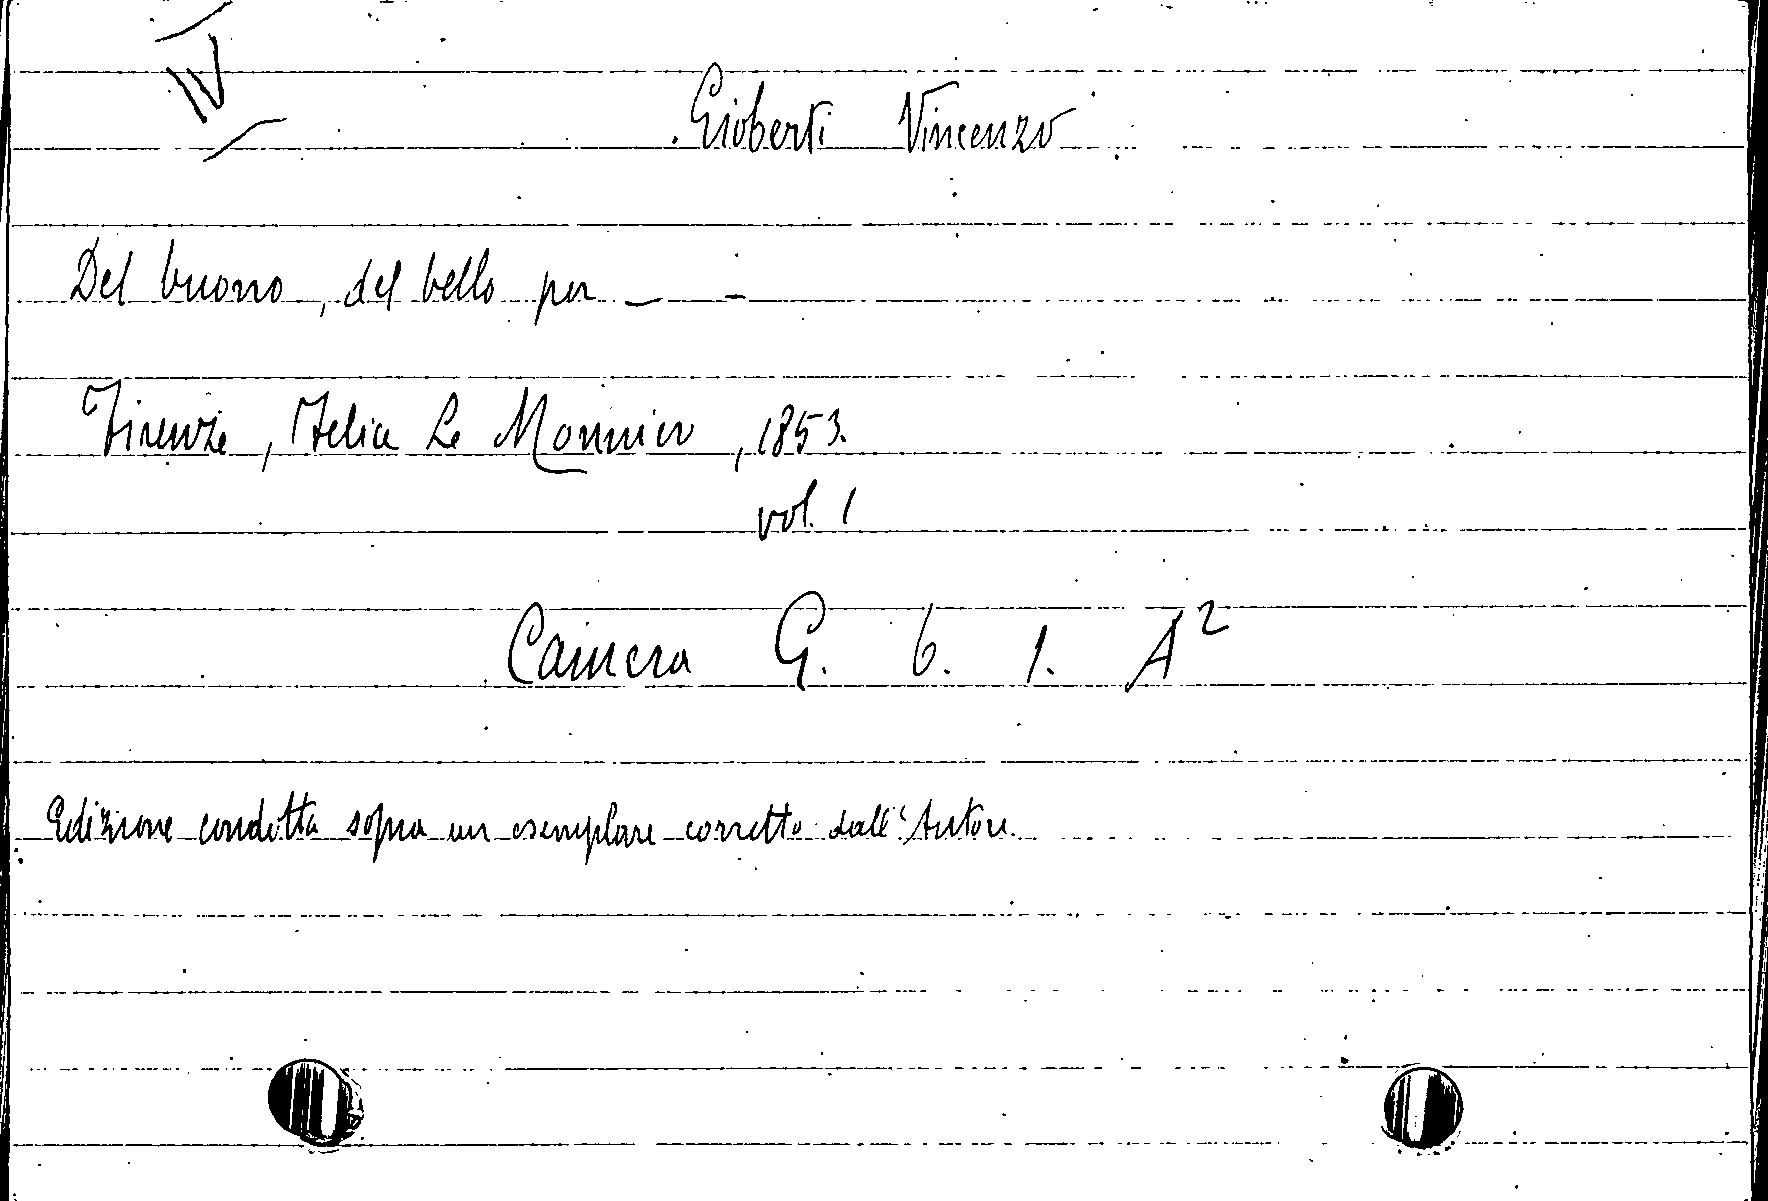 IV
Gioberti Vincenzo
Del buono, del bello per — -
Firenze, Felice Le Monnier, 1853.
vol. 1
Camera G. 6. 1. A²
Edizione condotta sopra un esemplare corretto dall'Autore